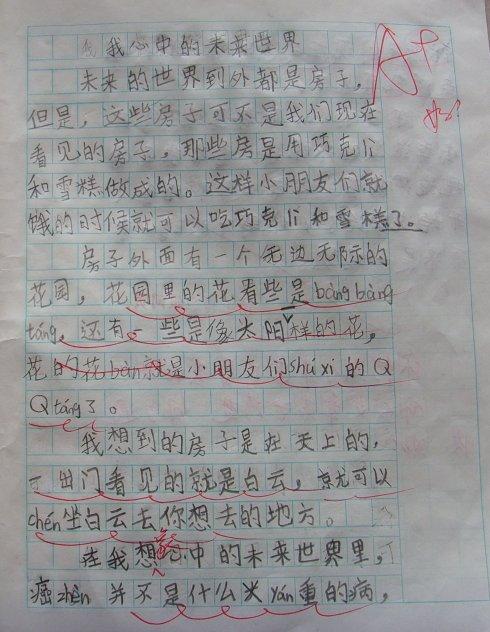 我心中的未来世界
A+
未来的世界到外都是房子,
但是,这些房子可不是我们现在
看见的房子,那些房是用巧克力
和雪糕做成的。这样小朋友们就
饿的时候就可以吃巧克力和雪糕了。
房子外面有一个无边无际的
花园,花园里的花有些是bàng bàng
táng,还有一些是像太阳样的花,
花的花bàn就是小朋友们shú xi的Q
Q táng了。
我想到的房子是在天上的,
一出门看见的就是白云,就可以
chén坐白云去你想去的地方。
在我想心中的未来世界里,
癌zhèn并不是什么大yán重的病,